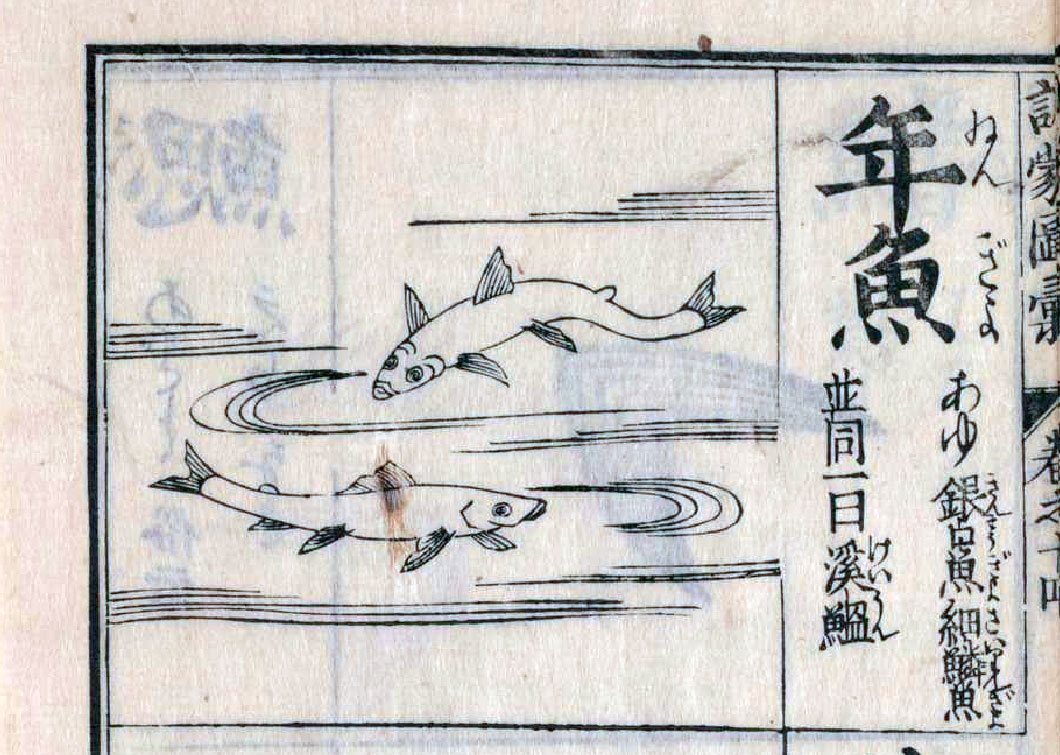 訓蒙圖彙　卷之十四
ねんぎよ
年魚
あゆ 銀口魚細鱗魚
さいりんぎよ
並同一曰溪鰮
けいうん